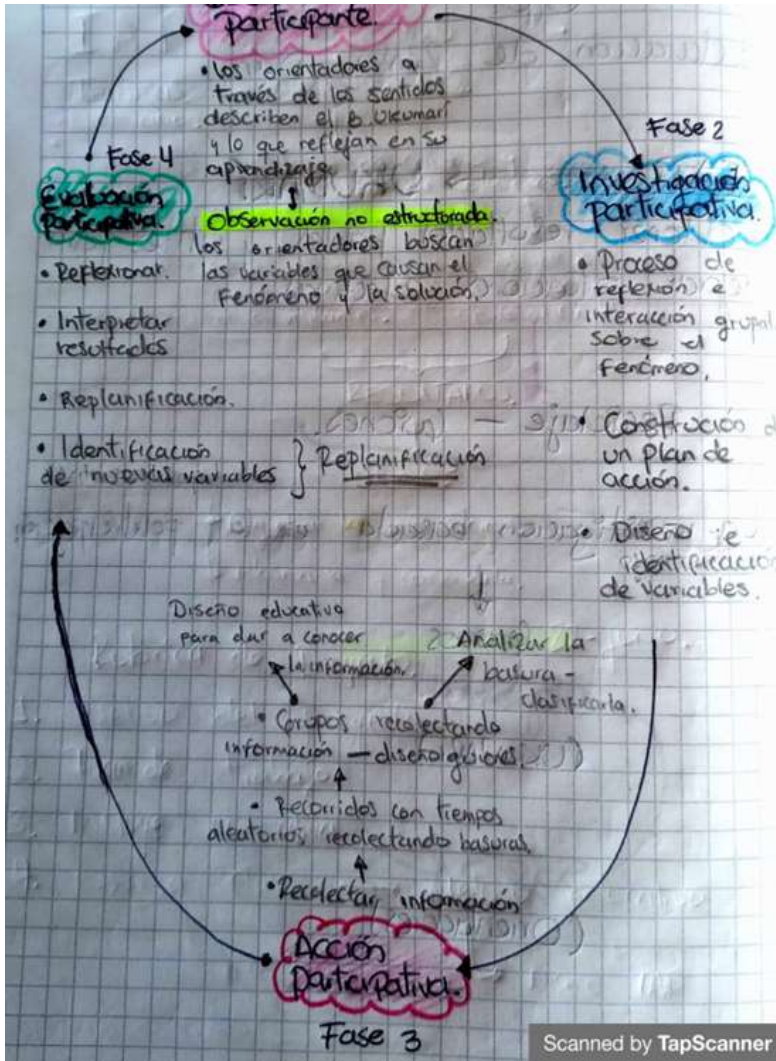 participante.
• los orientadores a
través de los sentidos
describen el B. Ukumarí
y lo que reflejan en su
aprendizaje.
Observación no estructurada.
los orientadores buscan
las variables que causan el
Fenómeno y la solución.
Fase 2
Investigación
participativa.
• Proceso de
reflexión e
interacción grupal
sobre el
Fenómeno.
• Construcción d
un plan de
acción.
• Diseño e
identificación
de variables.
Fase 4
Evaluación
participativa.
• Reflexionar.
• Interpretar
resultados
• Replanificación.
• Identificación
de nuevas variables } Replanificación
Diseño educativo
para dar a conocer
la información.
Analizar la
basura -
clasificarla.
• Grupos recolectando
información — diseño
• Recorridos con tiempos
aleatorios recolectando basuras.
• Recolectar información
Acción
participativa.
Fase 3
Scanned by TapScanner